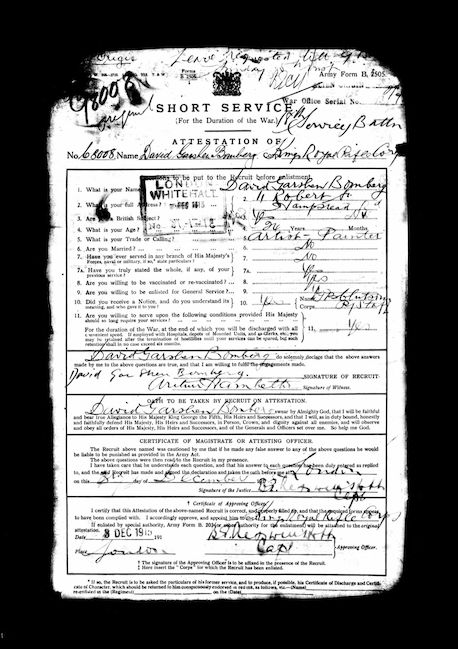 Army Form B. 2505.
98008
original
SHORT SERVICE
(For the Duration of the War.)
War Office Serial No.
18th Service Battn
ATTESTATION OF
No. C/8008 Name David Garshen Bomberg Corps King's Royal Rifle Corps
Questions to be put to the Recruit before enlistment.
LONDON
WHITEHALL
DEC 1915
No.
1. What is your Name David Garshen Bomberg
2. What is your full Address? 2. 11 Robert St
Hampstead Rd
3. Are you a British Subject? 3. Yes
4. What is your Age? 4. Years Months
5. What is your Trade or Calling? 5. Artist - Painter
6. Are you Married? 6. No
7. Have you ever served in any branch of His Majesty's
Forces, naval or military, if so,* state particulars? 7. No
7a. Have you truly stated the whole, if any, of your
previous service? 7a. Yes
8. Are you willing to be vaccinated or re-vaccinated? 8. Yes
9. Are you willing to be enlisted for General Service? 9. Yes
10. Did you receive a Notice, and do you understand its
meaning, and who gave it to you? 10. Yes Name
Corps
11. Are you willing to serve upon the following conditions provided His Majesty
should so long require your services?
For the duration of the War, at the end of which you will be discharged with all
convenient speed. If employed with Hospitals, depots of Mounted Units, and as Clerks, etc., you
may be retained after the termination of hostilities until your services can be spared, but such
retention shall in no case exceed six months. 11. Yes
I, David Garshen Bomberg do solemnly declare that the above answers
made by me to the above questions are true, and that I am willing to fulfil the engagements made.
David Garshen Bomberg. SIGNATURE OF RECRUIT.
Signature of Witness.
OATH TO BE TAKEN BY RECRUIT ON ATTESTATION.
I, David Garshen Bomberg swear by Almighty God, that I will be faithful
and bear true Allegiance to His Majesty King George the Fifth, His Heirs and Successors, and that I will, as in duty bound, honestly
and faithfully defend His Majesty, His Heirs and Successors, in Person, Crown, and Dignity against all enemies, and will observe
and obey all orders of His Majesty, His Heirs and Successors, and of the Generals and Officers set over me. So help me God.
CERTIFICATE OF MAGISTRATE OR ATTESTING OFFICER.
The Recruit above named was cautioned by me that if he made any false answer to any of the above questions he would
be liable to be punished as provided in the Army Act.
The above questions were then read to the Recruit in my presence.
I have taken care that he understands each question, and that his answer to each question has been duly entered as replied
to, and the said Recruit has made and signed the declaration and taken the oath before me at London
on this 8th day of December
Signature of the Justice
Capt
† Certificate of Approving Officer.
I certify that this Attestation of the above-named Recruit is correct, and properly filled up, and that the required forms appear
to have been complied with. I accordingly approve, and appoint him to the‡ King's Royal Rifle Corps
If enlisted by special authority, Army Form B. 203 (or other authority for the enlistment) will be attached to the original
attestation.
Date 8 DEC 1915 191
Capt Approving Officer.
Place London
† The signature of the Approving Officer is to be affixed in the presence of the Recruit.
‡ Here insert the "Corps" for which the Recruit has been enlisted.
* If so, the Recruit is to be asked the particulars of his former service, and to produce, if possible, his Certificate of Discharge and Certifi-
cate of Character, which should be returned to him conspicuously endorsed in red ink, as follows, viz.—(Name)
re-enlisted in the (Regiment) on the (Date)
1